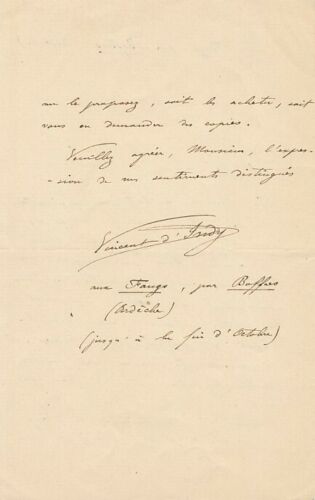 me le proposez, soit les acheter, soit
vous en demander des copies.
Veuillez agréer, Monsieur, l'expres-
-sion de mes sentiments distingués
Vincent d'Indy
aux Faugs, par Boffres
(Ardèche)
(jusqu'à la fin d'Octobre)